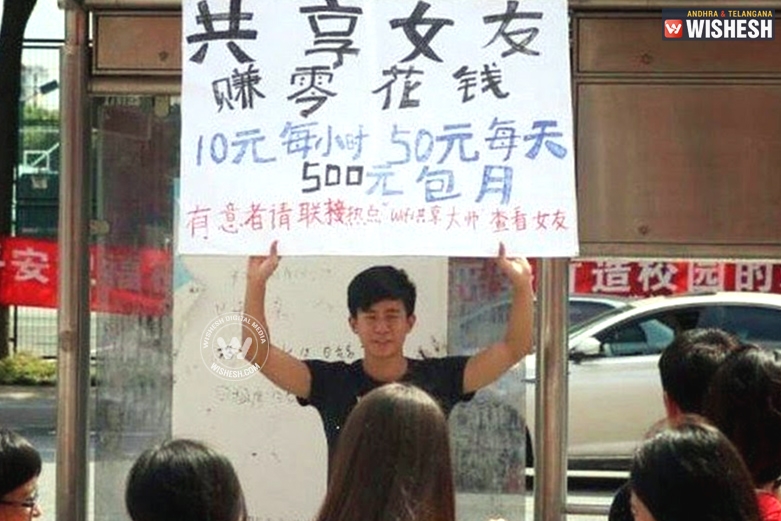 ANDHRA & TELANGANA
WISHESH
共享女友
赚零花钱
10元每小时 50元每天
500元包月
有意者请联接热点"wifi共享大师"查看女友
安
造校园的
WISHESH DIGITAL MEDIA
WISHESH.COM